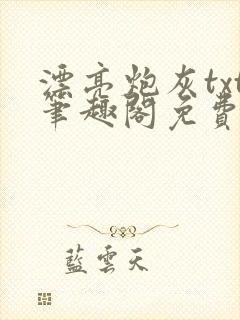 漂亮炮灰txt
笔趣阁免費
藍雲天